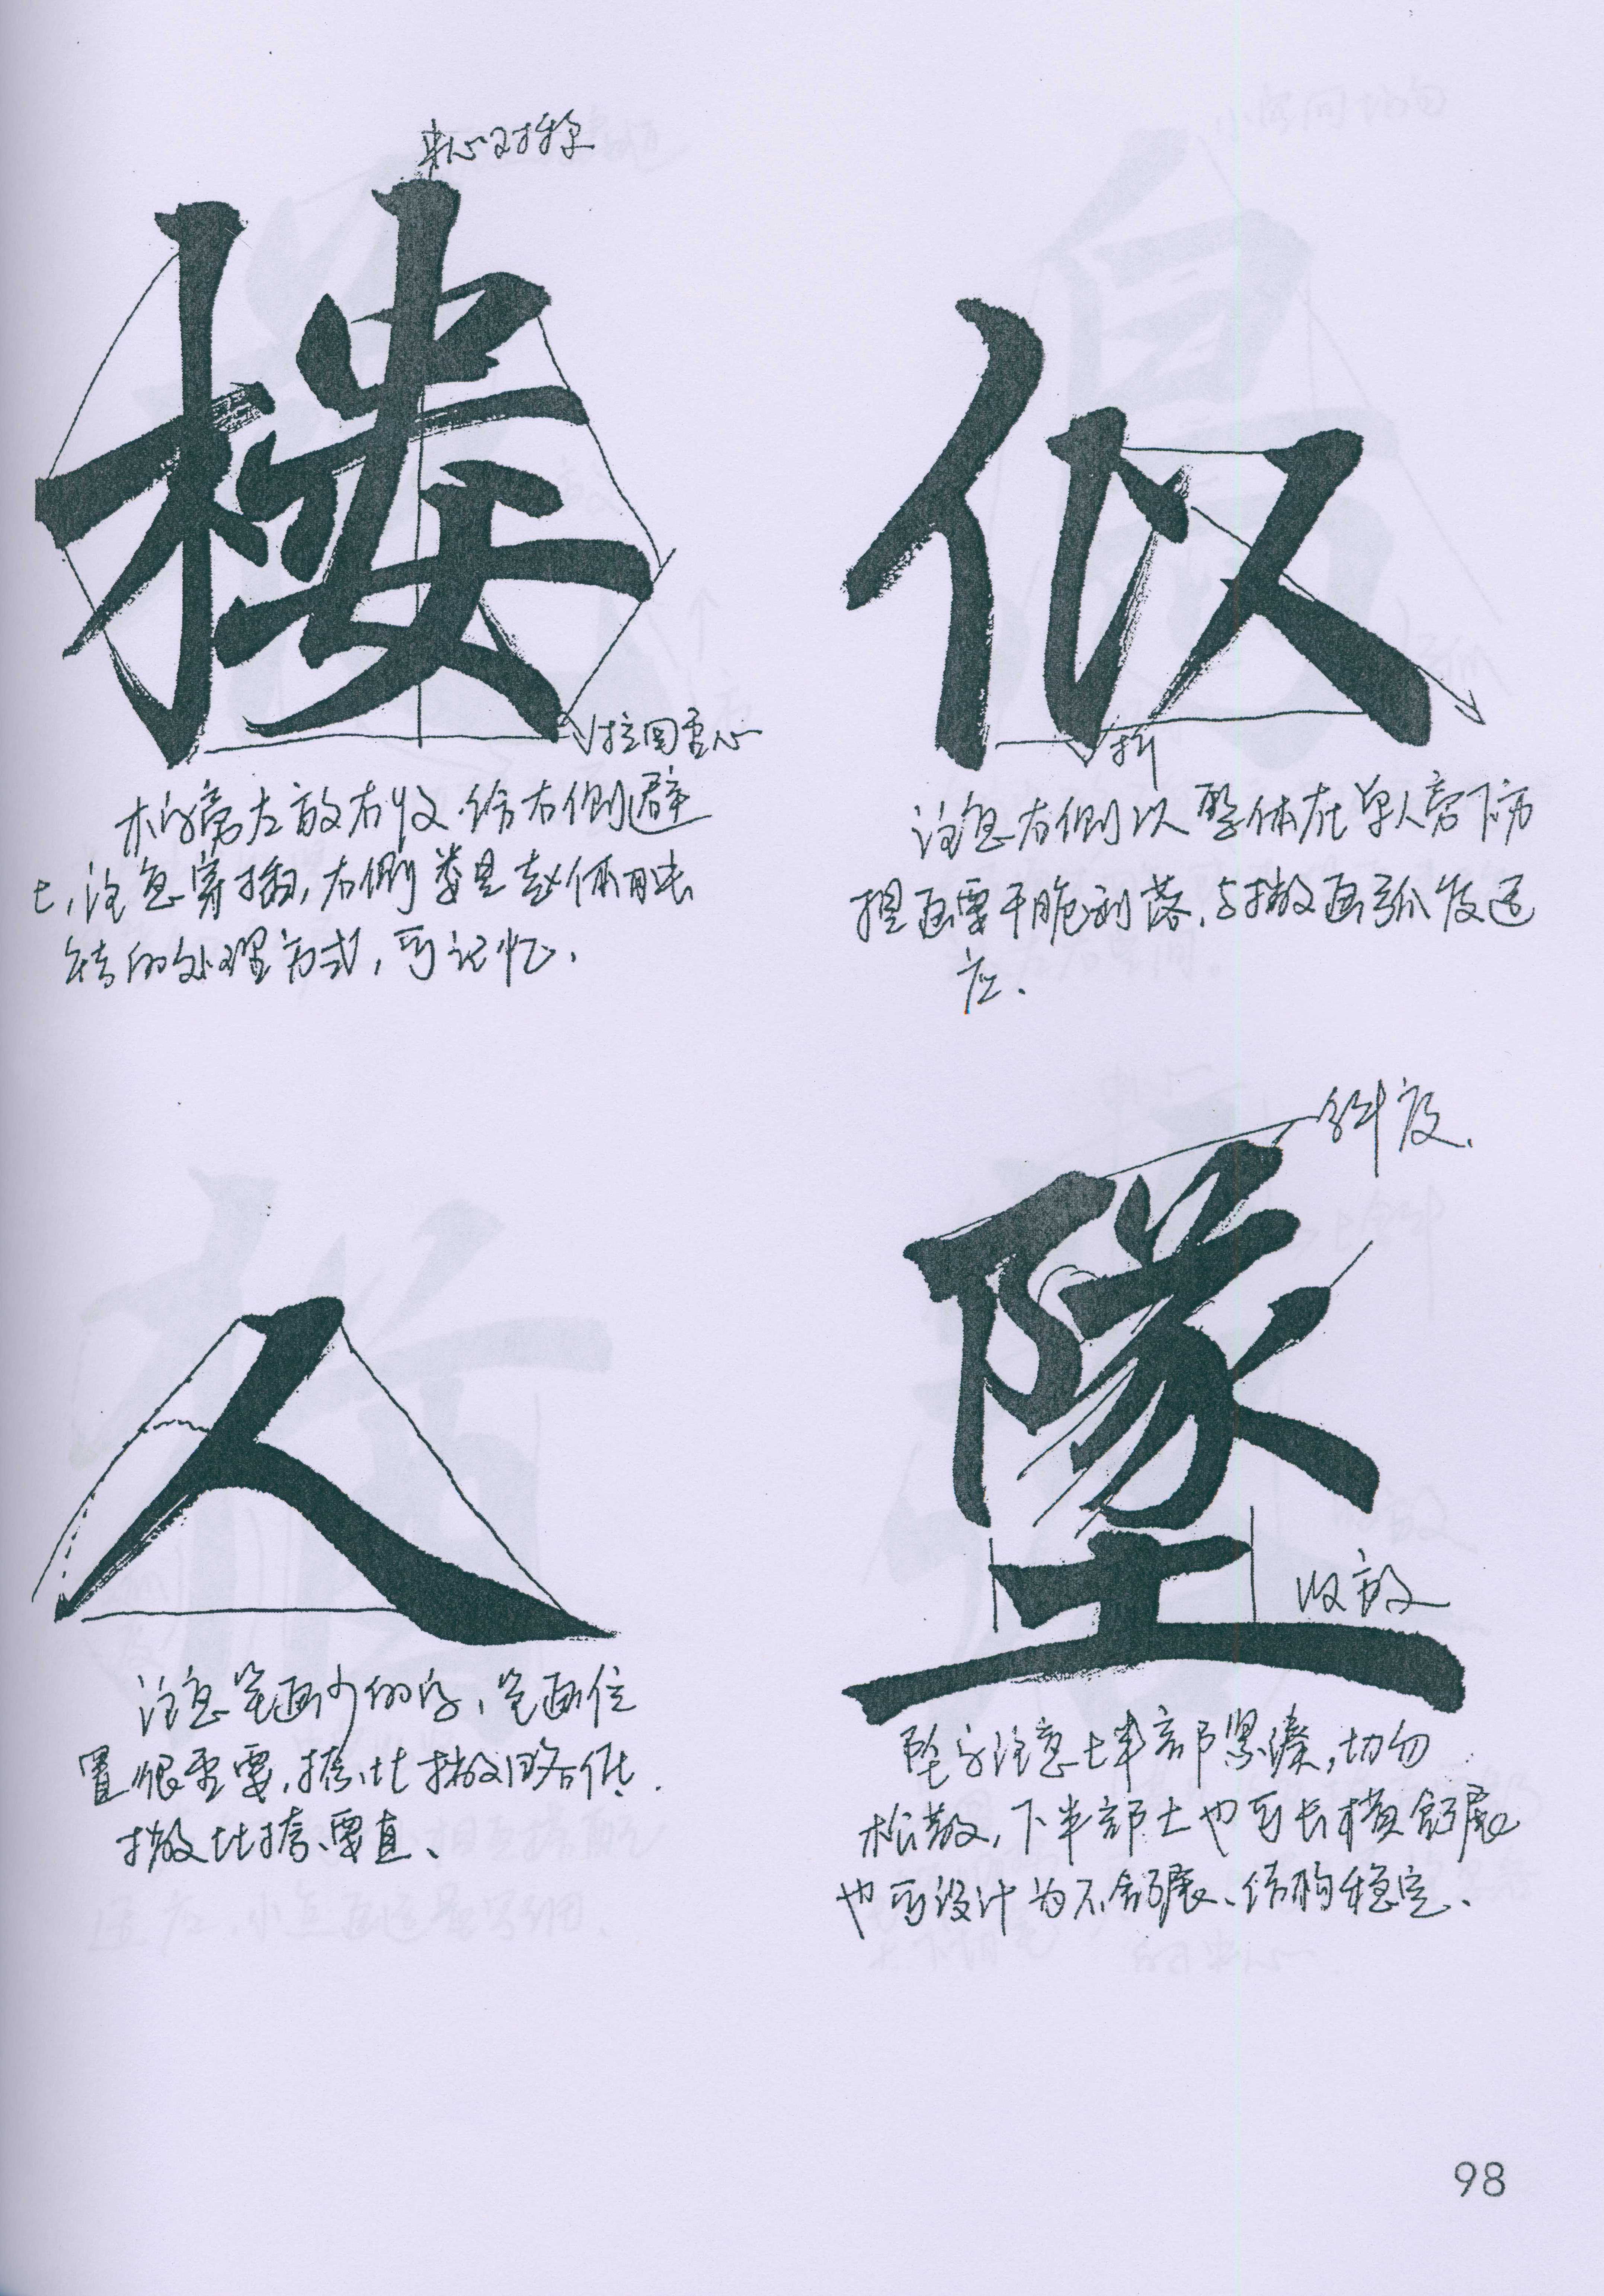 重心对撑
楼
拉回重心
木字旁左放右收.给右侧避
七,注意穿插,右侧娄是赵佶用长
转的处理方式,可记忆.
似
折
注意右侧以整体在单人旁下方
提画要干脆利落,与撇画弧度适
应.
人
注意笔画少的字,笔画位
置很重要,捺比撇略低.
撇比捺要直、
斜度.
墜
收放
坠字注意上半部紧凑,切勿
松散,下半部土也可长横舒展
也可设计为不舒展、结构稳定、
98